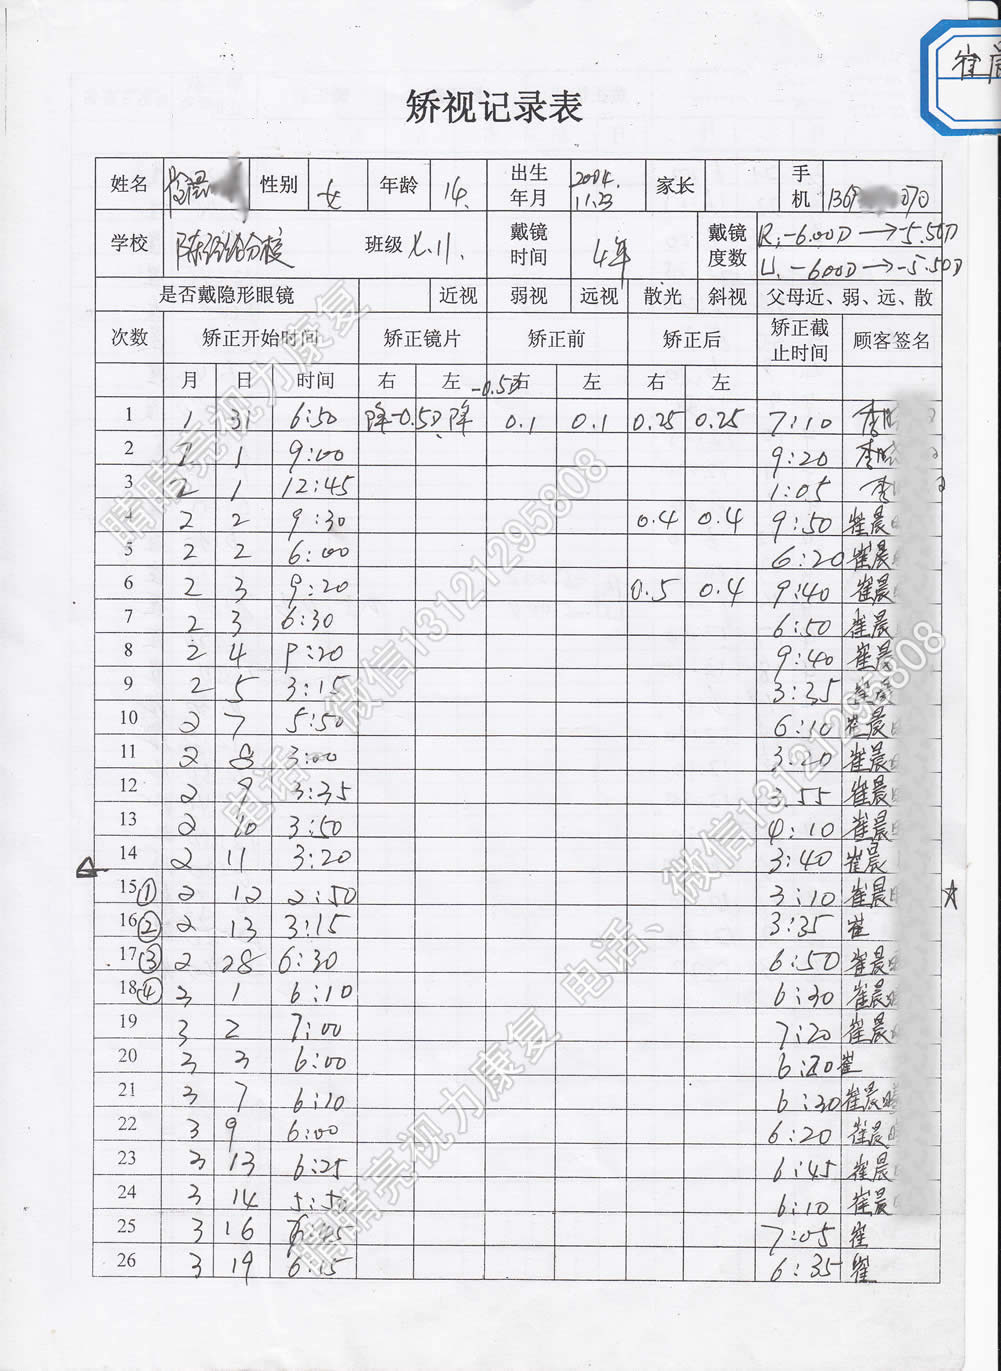 崔晨
矫视记录表
姓名 崔晨 性别 女 年龄 14. 出生年月 2004. 11.23 家长 手机 136 070
学校 陈经纶分校 班级 七.11. 戴镜时间 4年 戴镜度数 R:-6.00D→-5.50D
L:-6.00D→-5.50D
是否戴隐形眼镜 近视 弱视 远视 散光 斜视 父母近、弱、远、散
次数 矫正开始时间 矫正镜片 矫正前 矫正后 矫正截止时间 顾客签名
月 日 时间 右 左 右 左 右 左
-0.5D
1 1 31 6:50 降-0.5D 降 0.1 0.1 0.25 0.25 7:10 李
2 2 1 9:00 9:20 李
3 2 1 12:45 1:05 李
4 2 2 9:30 0.4 0.4 9:50 崔晨
5 2 2 6:00 6:20 崔晨
6 2 3 9:20 0.5 0.4 9:40 崔晨
7 2 3 6:30 6:50 崔晨
8 2 4 9:20 9:40 崔晨
9 2 5 3:15 3:35 崔晨
10 2 7 5:50 6:10 崔晨
11 2 8 3:00 3:20 崔晨
12 2 9 3:35 3:55 崔晨
13 2 10 3:50 4:10 崔晨
14 2 11 3:20 3:40 崔晨
15 ① 2 12 2:50 3:10 崔晨
16 ② 2 13 3:15 3:35 崔
17 ③ 2 28 6:30 6:50 崔晨
18 ④ 3 1 6:10 6:30 崔晨
19 3 2 7:00 7:20 崔晨
20 3 3 6:00 6:20 崔
21 3 7 6:10 6:30 崔晨
22 3 9 6:00 6:20 崔晨
23 3 13 6:25 6:45 崔晨
24 3 14 5:50 6:10 崔晨
25 3 16 6:45 7:05 崔
26 3 19 6:15 6:35 崔
睛睛亮视力康复 电话、微信13121295808
睛睛亮视力康复 电话、微信13121295808